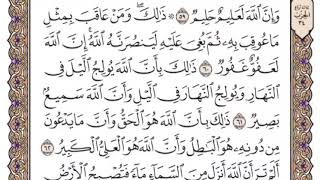 وَإِنَّ ٱللَّهَ لَعَلِيمٌ حَلِيمٌ ٥٩ ۞ ذَٰلِكَۖ وَمَنْ عَاقَبَ بِمِثْلِ
مَا عُوقِبَ بِهِۦ ثُمَّ بُغِىَ عَلَيْهِ لَيَنصُرَنَّهُ ٱللَّهُۗ إِنَّ ٱللَّهَ
لَعَفُوٌّ غَفُورٌ ٦٠ ذَٰلِكَ بِأَنَّ ٱللَّهَ يُولِجُ ٱلَّيْلَ فِى
ٱلنَّهَارِ وَيُولِجُ ٱلنَّهَارَ فِى ٱلَّيْلِ وَأَنَّ ٱللَّهَ سَمِيعٌۢ
بَصِيرٌ ٦١ ذَٰلِكَ بِأَنَّ ٱللَّهَ هُوَ ٱلْحَقُّ وَأَنَّ مَا يَدْعُونَ
مِن دُونِهِۦ هُوَ ٱلْبَٰطِلُ وَأَنَّ ٱللَّهَ هُوَ ٱلْعَلِىُّ ٱلْكَبِيرُ ٦٢
أَلَمْ تَرَ أَنَّ ٱللَّهَ أَنزَلَ مِنَ ٱلسَّمَآءِ مَآءً فَتُصْبِحُ ٱلْأَرْضُ
الحزب
٣٤